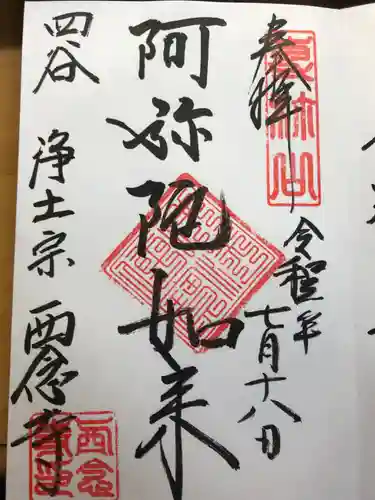 奉拝
令和二年
七月十八日
阿弥陀如来
四谷 浄土宗 西念寺
西念